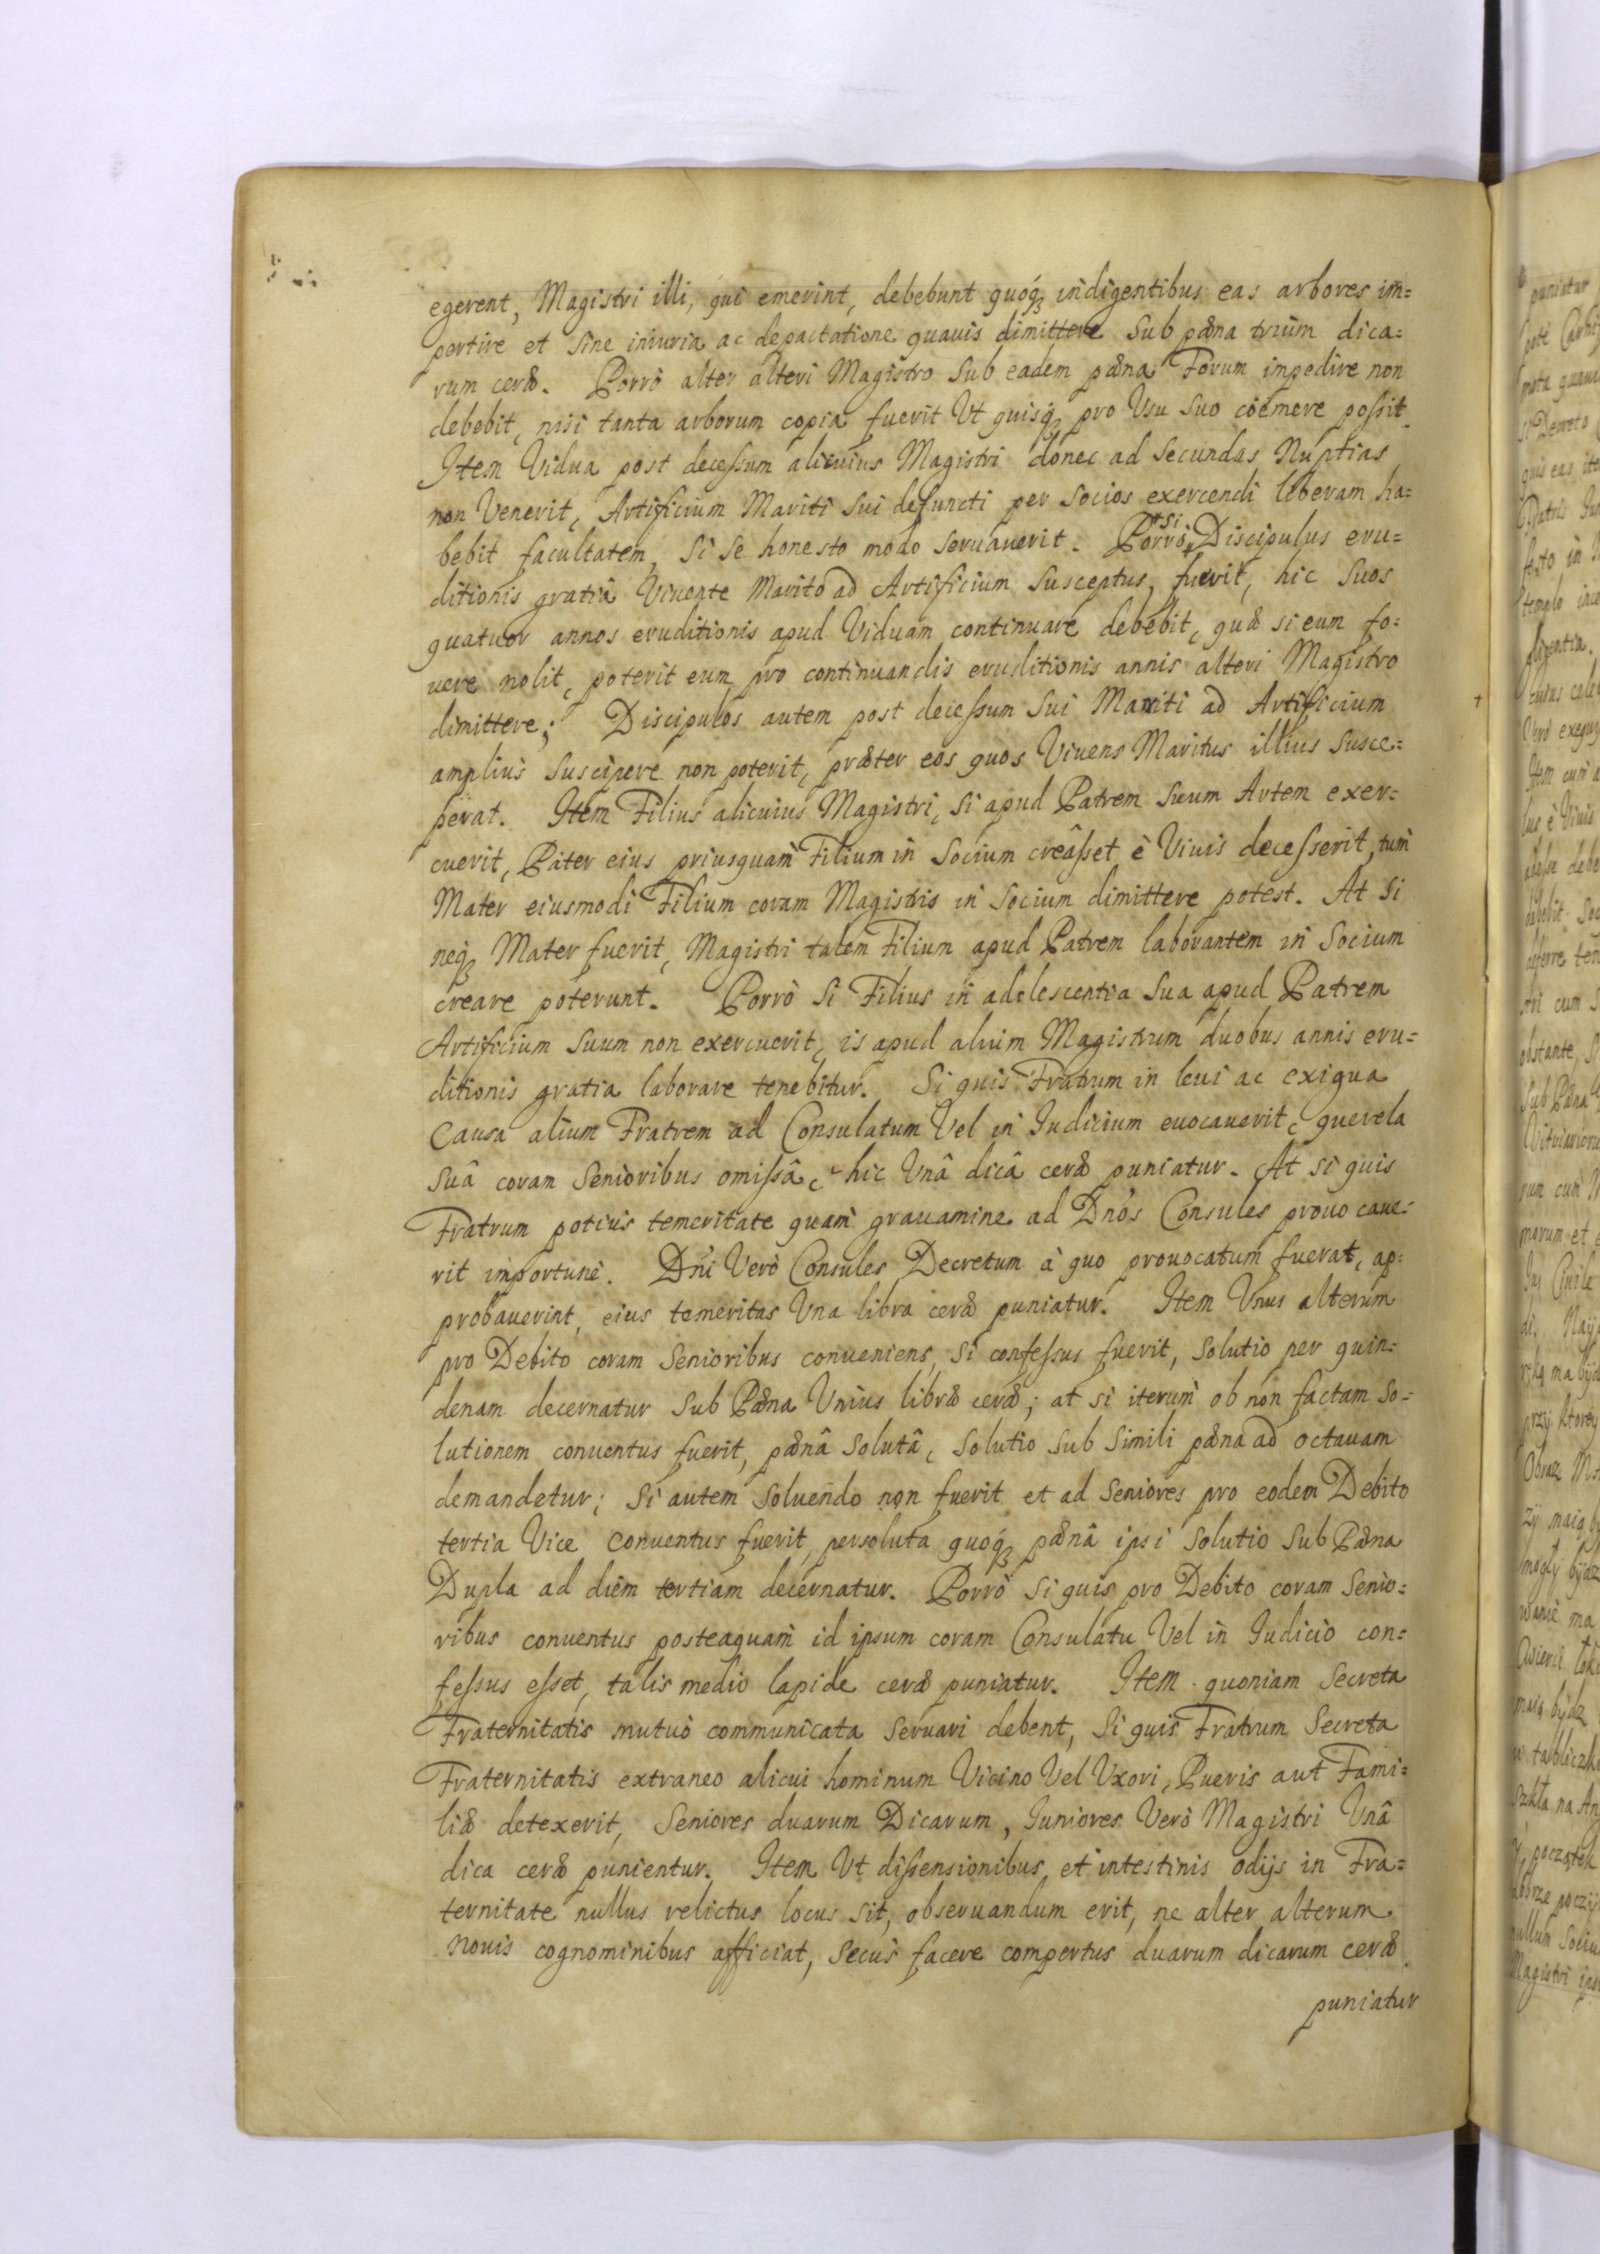 egerent, Magistri illi, qui emerint, debebunt quóq; indigentibus eas arbores im=
pertire et sine iniuria ac depactatione quauis dimittere sub pæna trium dica=
rum ceræ. Porrò alter alteri Magistro sub eadem pæna Forum impedire non
debebit, nisi tanta arborum copia fuerit Vt quisq; pro Vsu suo coëmere possit.
Item Vidua post decessum alicuius Magistri donec ad secundas Nuptias
non Venerit, Artificium Mariti sui defuncti per socios exercendi liberam ha=
bebit facultatem, si se honesto modo seruauerit. Porrò si Discipulus eru=
ditionis gratiâ Viuente Marito ad Artificium susceptus fuerit, hic suos
quatuor annos eruditionis apud Viduam continuare debebit, quæ si eum fo=
uere nolit, poterit eum pro continuandis eruditionis annis alteri Magistro
dimittere; Discipulos autem post decessum sui Mariti ad Artificium
ampliùs suscipere non poterit, præter eos quos Viuens Maritus illius susce=
perat. Item Filius alicuius Magistri, si apud Patrem suum Artem exer=
cuerit, Pater eius priusquam Filium in Socium creâsset è Viuis decesserit, tum
Mater eiusmodi Filium coram Magistris in Socium dimittere potest. At si
neq; Mater fuerit, Magistri talem Filium apud Patrem laborantem in Socium
creare poterunt. Porrò si Filius in adolescentia sua apud Patrem
Artificium suum non exercuerit, is apud alium Magistrum duobus annis eru=
ditionis gratia laborare tenebitur. Si quis Fratrum in leui ac exigua
Causa alium Fratrem ad Consulatum Vel in Iudicium euocauerit, querela
suâ coram Senioribus omissâ, hic Vnâ dicâ ceræ puniatur. At si quis
Fratrum potius temeritate quàm grauamine ad Dnos Consules prouocaue=
rit importunè. Dni Verò Consules Decretum à quo prouocatum fuerat, ap=
probauerint, eius temeritas Vna libra ceræ puniatur. Item Vnus alterum
pro Debito coram Senioribus conueniens, si confessus fuerit, solutio per quin=
denam decernatur sub Pæna Vnius libræ ceræ; at si iterum ob non factam so=
lutionem conuentus fuerit, pænâ solutâ, solutio sub simili pæna ad octauam
demandetur; si autem soluendo non fuerit et ad Seniores pro eodem Debito
tertia Vice conuentus fuerit, persoluta quóq; pænâ ipsi solutio sub Pæna
Dupla ad diem tertiam decernatur. Porrò si quis pro Debito coram Senio=
ribus conuentus posteaquam id ipsum coram Consulatu Vel in Iudicio con=
fessus esset, talis medio lapide ceræ puniatur. Item quoniam Secreta
Fraternitatis mutuò communicata seruari debent, si quis Fratrum Secreta
Fraternitatis extraneo alicui hominum Vicino Vel Vxori, Pueris aut Fami=
liæ detexerit, Seniores duarum Dicarum, Iuniores Verò Magistri Vnâ
dica ceræ punientur. Item Vt dissensionibus, et intestinis odijs in Fra=
ternitate nullus relictus locus sit, obseruandum erit, ne alter alterum
nouis cognominibus afficiat, secus facere compertus duarum dicarum ceræ
puniatur